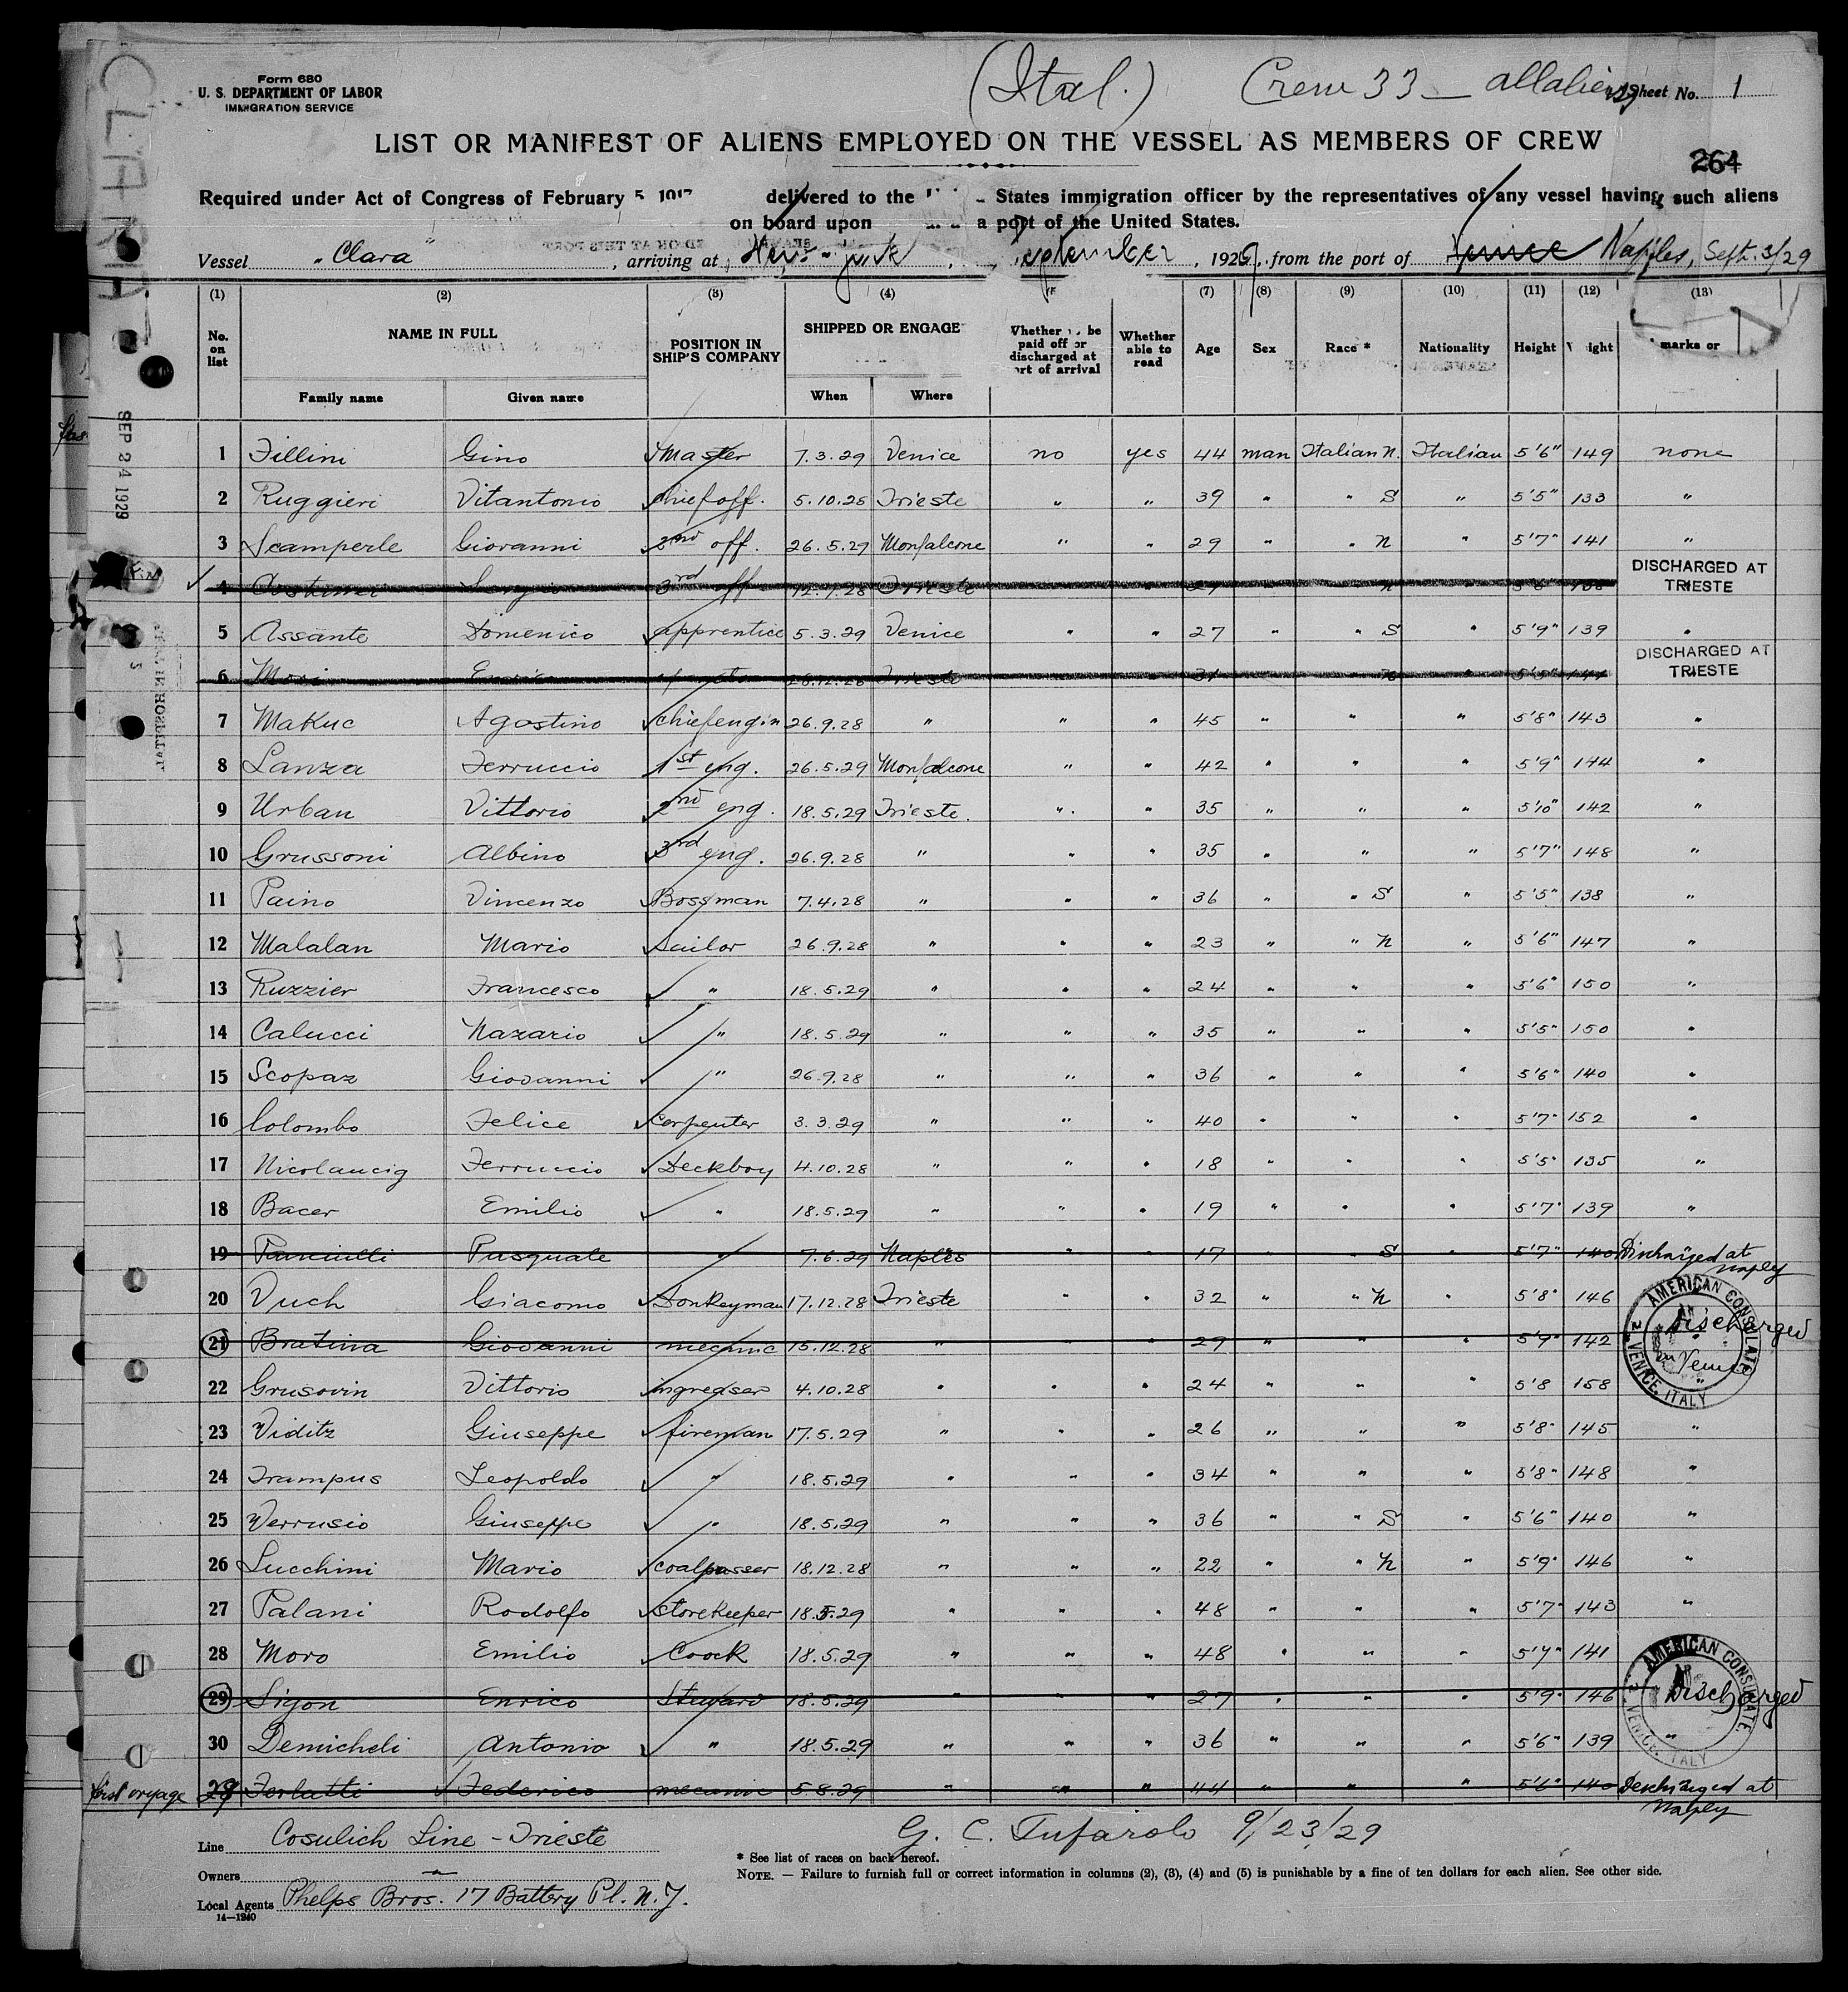 Form 680
U. S. DEPARTMENT OF LABOR
IMMIGRATION SERVICE
(Ital.) Crew 33 — all aliens Sheet No. 1
LIST OR MANIFEST OF ALIENS EMPLOYED ON THE VESSEL AS MEMBERS OF CREW
264
Required under Act of Congress of February 5, 1917 delivered to the States immigration officer by the representatives of any vessel having such aliens
on board upon a port of the United States.
Vessel "Clara", arriving at New-york, September, 1929, from the port of Venice Naples, Sept. 3/29
(1) (2) (3) (4) (7) (8) (9) (10) (11) (12) (13)
No. on list NAME IN FULL Family name Given name POSITION IN SHIP'S COMPANY SHIPPED OR ENGAGE When Where Whether be paid off or discharged at ort of arrival Whether able to read Age Sex Race * Nationality Height ight marks or
CLARA
SEP 24 1929
1 Fillini Gino Master 7.3.29 Venice no yes 44 man Italian N. Italian 5'6" 149 none
2 Ruggieri Vitantonio chief off. 5.10.28 Trieste " " 39 " " S " 5'5" 133 "
3 Scamperle Giovanni 2nd off. 26.5.29 Monfalcone " " 29 " " N " 5'7" 141 "
4 3rd off 12.7.28 Trieste " 27 N " 5'6" DISCHARGED AT TRIESTE
5 Assante Domenico apprentice 5.3.29 Venice " " 27 " " S " 5'9" 139 "
6 Mori Enrico 28.12.28 Trieste " 31 N 5'5" 144 DISCHARGED AT TRIESTE
7 Makuc Agostino chief engin 26.9.28 " " " 45 " " " 5'8" 143 "
8 Lanza Ferruccio 1st eng. 26.5.29 Monfalcone " " 42 " " " 5'9" 144 "
9 Urban Vittorio 2nd eng. 18.5.29 Trieste. " " 35 " " " 5'10" 142 "
10 Grussoni Albino 3rd eng. 26.9.28 " " " 35 " " " 5'7" 148 "
11 Paino Vincenzo Bossman 7.4.28 " " " 36 " " S " 5'5" 138 "
12 Malalan Mario Sailor 26.9.28 " " " 23 " " N " 5'6" 147 "
13 Ruzzier Francesco " 18.5.29 " " " 24 " " " 5'6" 150 "
14 Calucci Nazario " 18.5.29 " " " 35 " " " 5'5" 150 "
15 Scopaz Giovanni " 26.9.28 " " " 36 " " " 5'6" 140 "
16 Colombo Felice Carpenter 3.3.29 " " " 40 " " " 5'7" 152 "
17 Nicolaucig Ferruccio Deckboy 4.10.28 " " " 18 " " " 5'5" 135 "
18 Bacer Emilio " 18.5.29 " " " 19 " " " 5'7" 139 "
19 Pasquale " 7.6.29 Naples " " 17 " " S " 5'7" 140 Discharged at Naples
20 Vuch Giacomo Donkeyman 17.12.28 Trieste " " 32 " " N " 5'8" 146
21 Bratina Giovanni mecanic 15.12.28 " " " 29 " " " 5'9" 142 " Discharged in Venice
AMERICAN CONSULATE VENICE, ITALY
22 Grusovin Vittorio ingreaser 4.10.28 " " " 24 " " " 5'8 158 "
23 Viditz Giuseppe fireman 17.5.29 " " " 26 " " " 5'8" 145 "
24 Trampus Leopoldo " 18.5.29 " " " 34 " " " 5'8" 148 "
25 Verrusio Giuseppe " 18.5.29 " " " 36 " " S " 5'6" 140 "
26 Lucchini Mario coalpasser 18.12.28 " " " 22 " " N " 5'9" 146 "
27 Palani Rodolfo storekeeper 18.5.29 " " " 48 " " " 5'7" 143 "
28 Moro Emilio Coock 18.5.29 " " " 48 " " " 5'7" 141
29 Sigon Enrico Steward 18.5.29 " " " 27 " " " 5'9" 146 Discharged
AMERICAN CONSULATE VENICE, ITALY
30 Demicheli Antonio " 18.5.29 " " " 36 " " " 5'6" 139 "
first voyage 29 Ferlatti Federico mecanic 5.8.29 " " " 44 " " " 5'6" 140 Discharged at Naples
Line Cosulich Line - Trieste
G. C. Tufarolo 9/23/29
* See list of races on back hereof.
Owners "
NOTE. — Failure to furnish full or correct information in columns (2), (3), (4) and (5) is punishable by a fine of ten dollars for each alien. See other side.
Local Agents Phelps Bros. 17 Battery Pl. N.Y.
14—1240